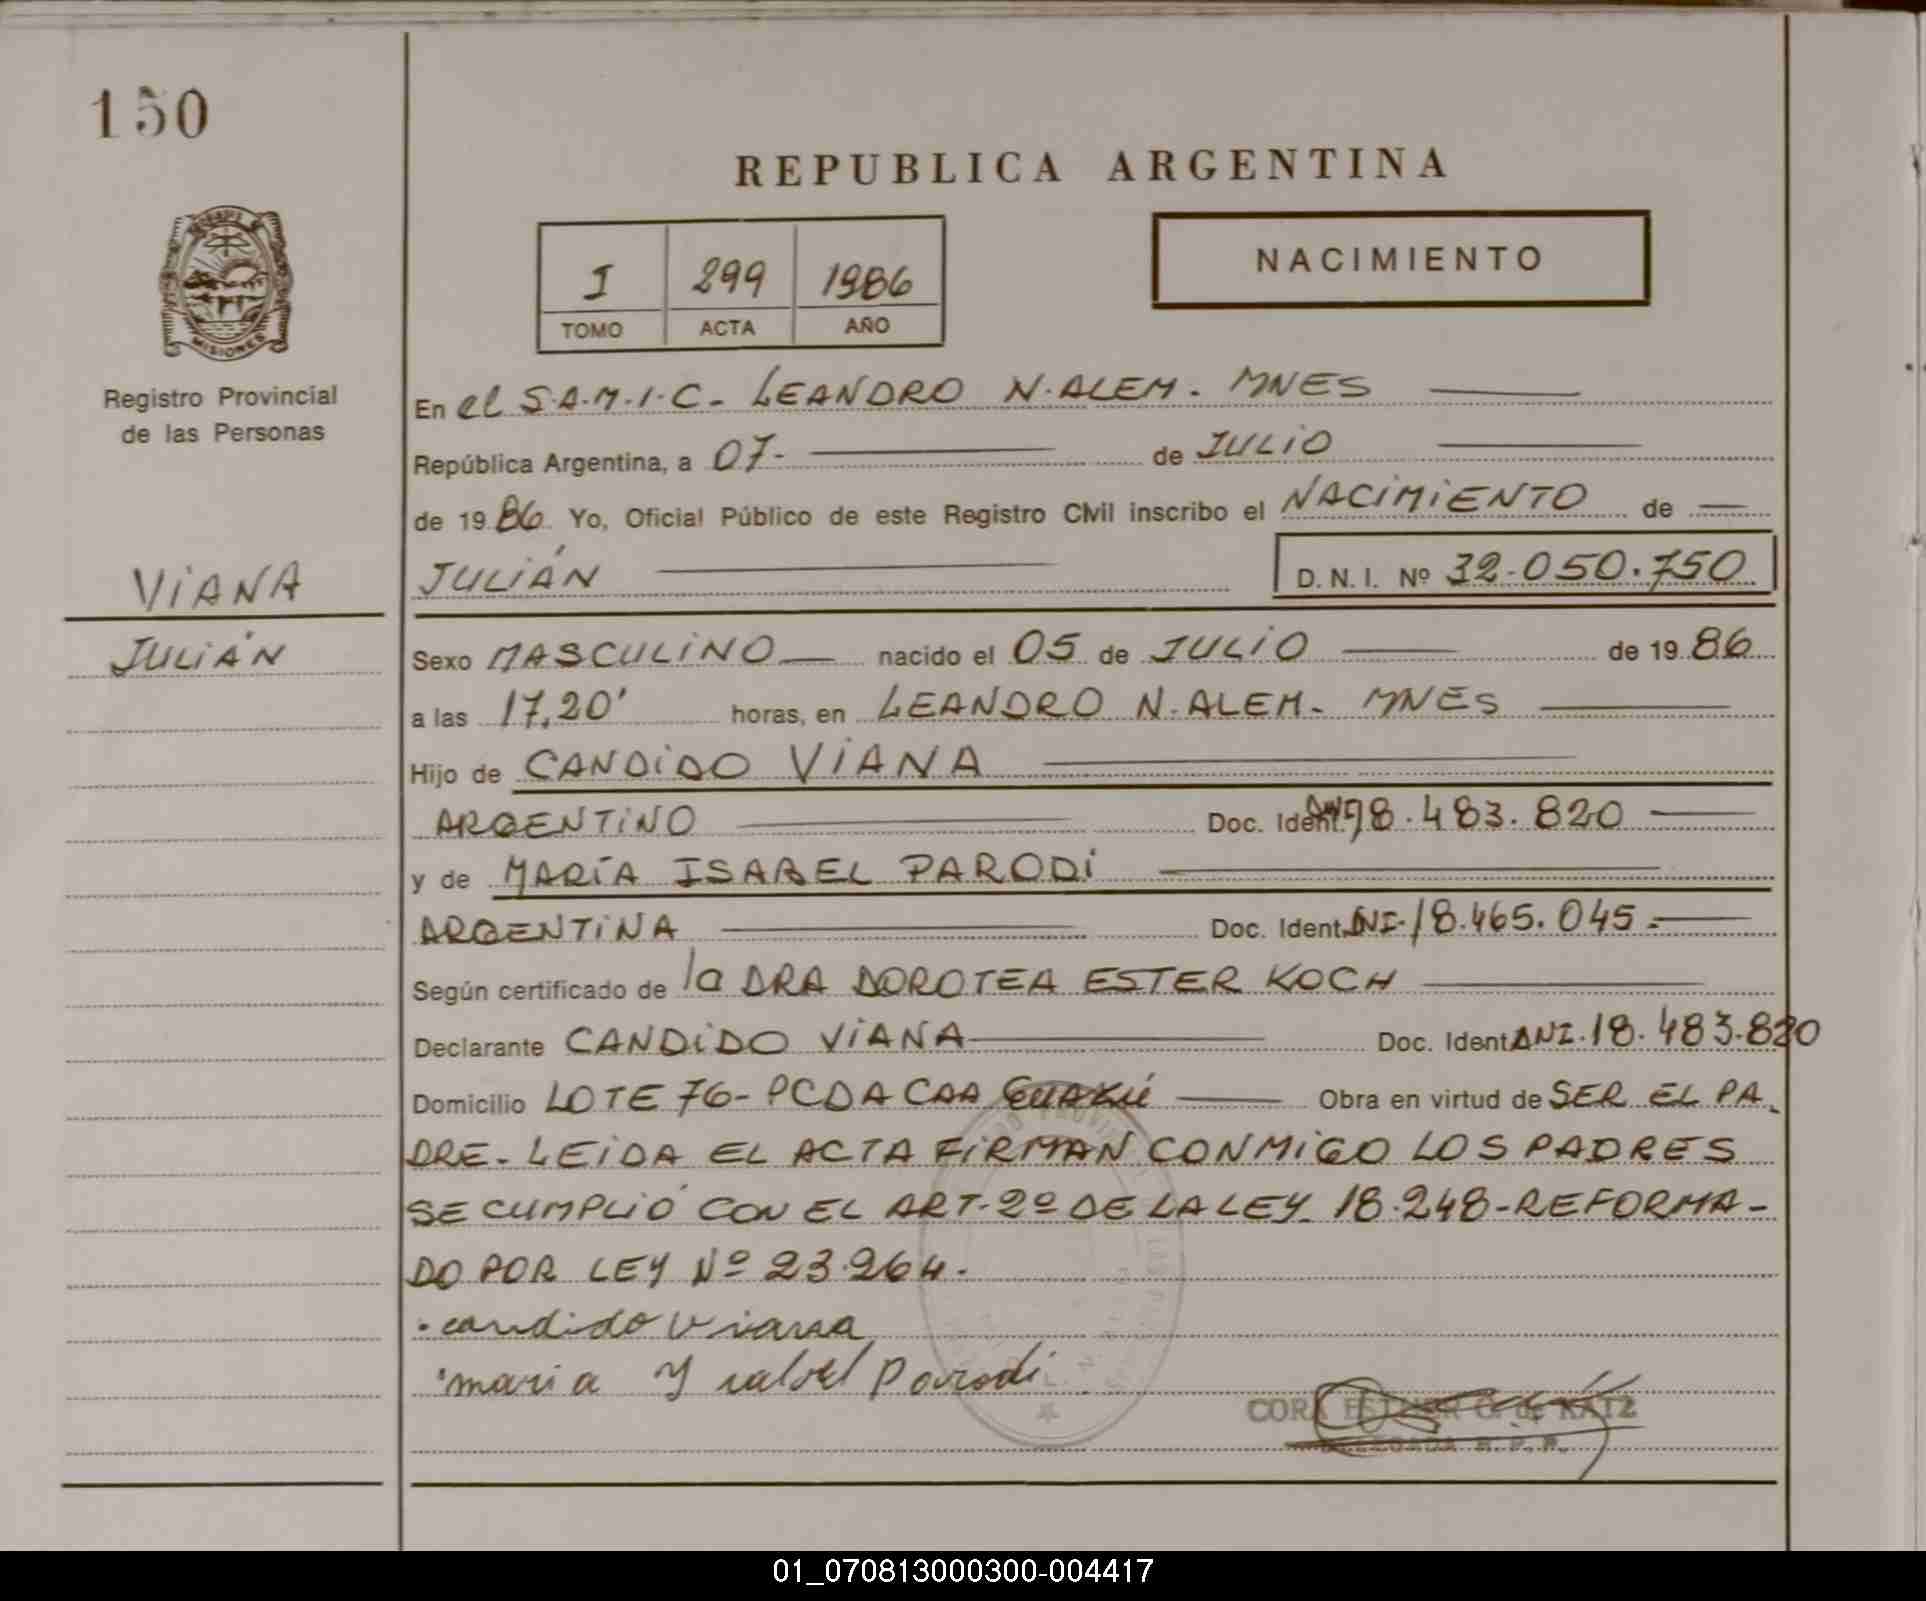 150
REPUBLICA ARGENTINA
I 299 1986
TOMO ACTA AÑO
NACIMIENTO
MISIONES
Registro Provincial
de las Personas
En el S.A.M.I.C- LEANDRO N. ALEM. MNES
República Argentina, a 07- de JULIO
de 1986 Yo, Oficial Público de este Registro Civil inscribo el NACIMIENTO de
VIANA
JULIÁN
JULIÁN D. N. I. Nº 32.050.750
Sexo MASCULINO nacido el 05 de JULIO de 1986
a las 17,20' horas, en LEANDRO N. ALEM- MNES
Hijo de CANDIDO VIANA
ARGENTINO Doc. Ident. 18.483.820
y de MARÍA ISABEL PARODI
ARGENTINA Doc. Ident. DNI-18.465.045.-
Según certificado de la DRA DOROTEA ESTER KOCH
Declarante CANDIDO VIANA Doc. Ident. DNI.18.483.820
Domicilio LOTE 76- PCDA CAA Obra en virtud de SER EL PA-
DRE- LEIDA EL ACTA FIRMAN CONMIGO LOS PADRES
SE CUMPLIÓ CON EL ART-2º DE LA LEY 18.248-REFORMA-
DO POR LEY Nº 23.264.
candido Viana
maria Ysabel Parodi
CORA ESTHER G. de KATZ
DELEGADA R. P. P.
01_070813000300-004417